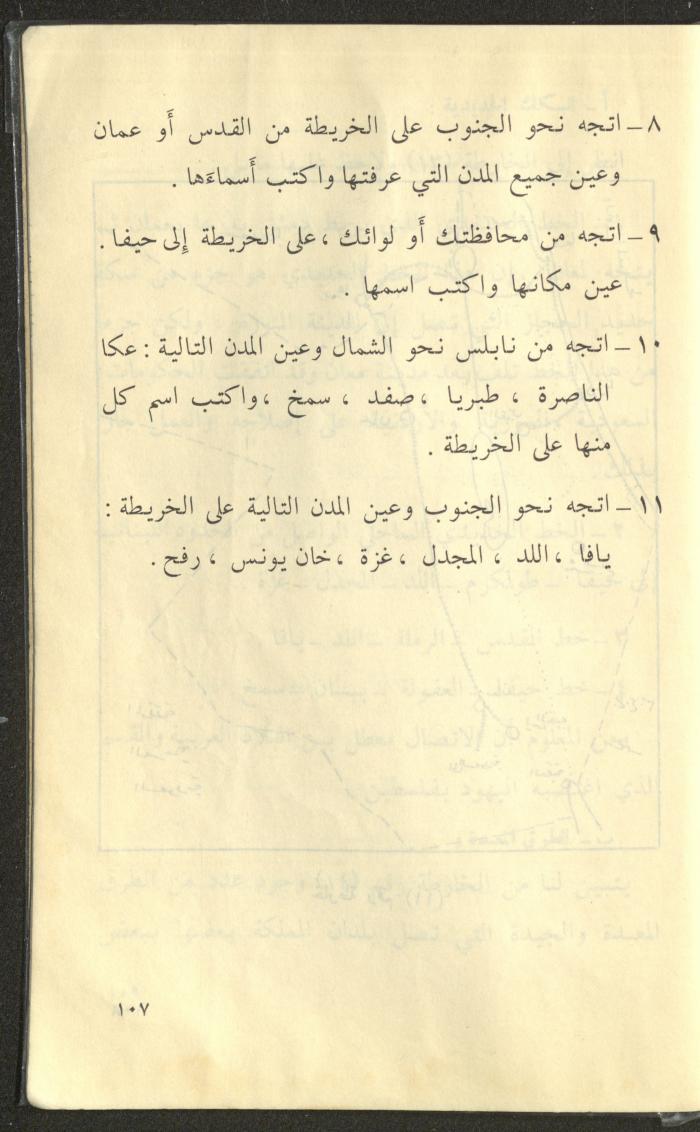 ٨ ــ اتجه نحو الجنوب على الخريطة من القدس أَو عمان
وعين جميع المدن التي عرفتها واكتب أَسماءَها .
٩ ــ اتجه من محافظتك أَو لوائك ، على الخريطة إِلى حيفا .
عين مكانها واكتب اسمها .
١٠ ــ اتجه من نابلس نحو الشمال وعين المدن التالية : عكا
الناصرة ، طبريا ، صفد ، سمخ ، واكتب اسم كل
منها على الخريطة .
١١ ــ اتجه نحو الجنوب وعين المدن التالية على الخريطة :
يافا ، اللد ، المجدل ، غزة ، خان يونس ، رفح .
١٠٧